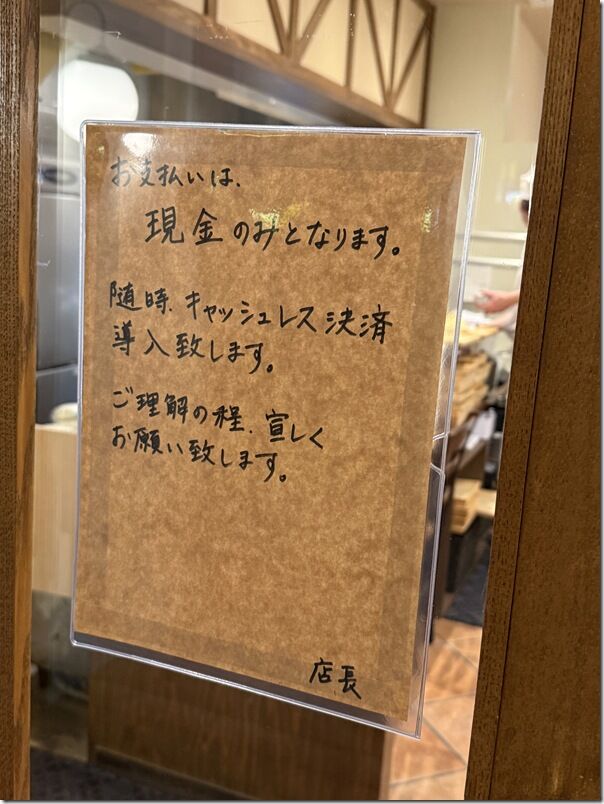 お支払いは、
現金のみとなります。
随時、キャッシュレス決済
導入致します。
ご理解の程、宜しく
お願い致します。
店長